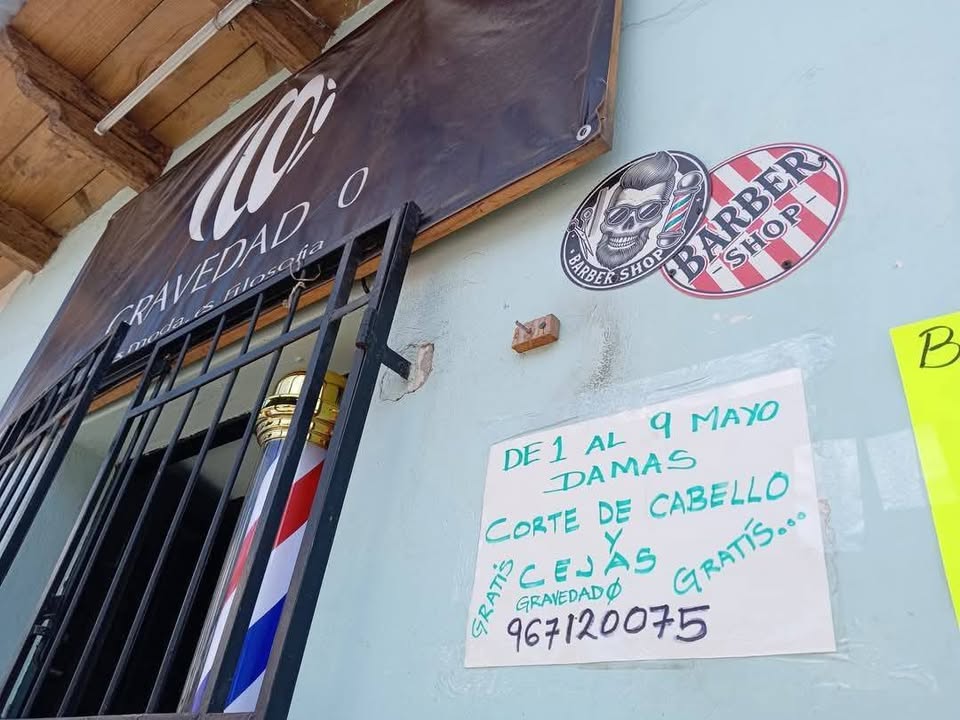 GRAVEDAD O
moda, es filosofia
BARBER SHOP
BARBER
- SHOP -
DE 1 AL 9 MAYO
DAMAS
CORTE DE CABELLO
Y
CEJAS
GRATIS
GRATÍS...
GRAVEDADØ
967120075
B